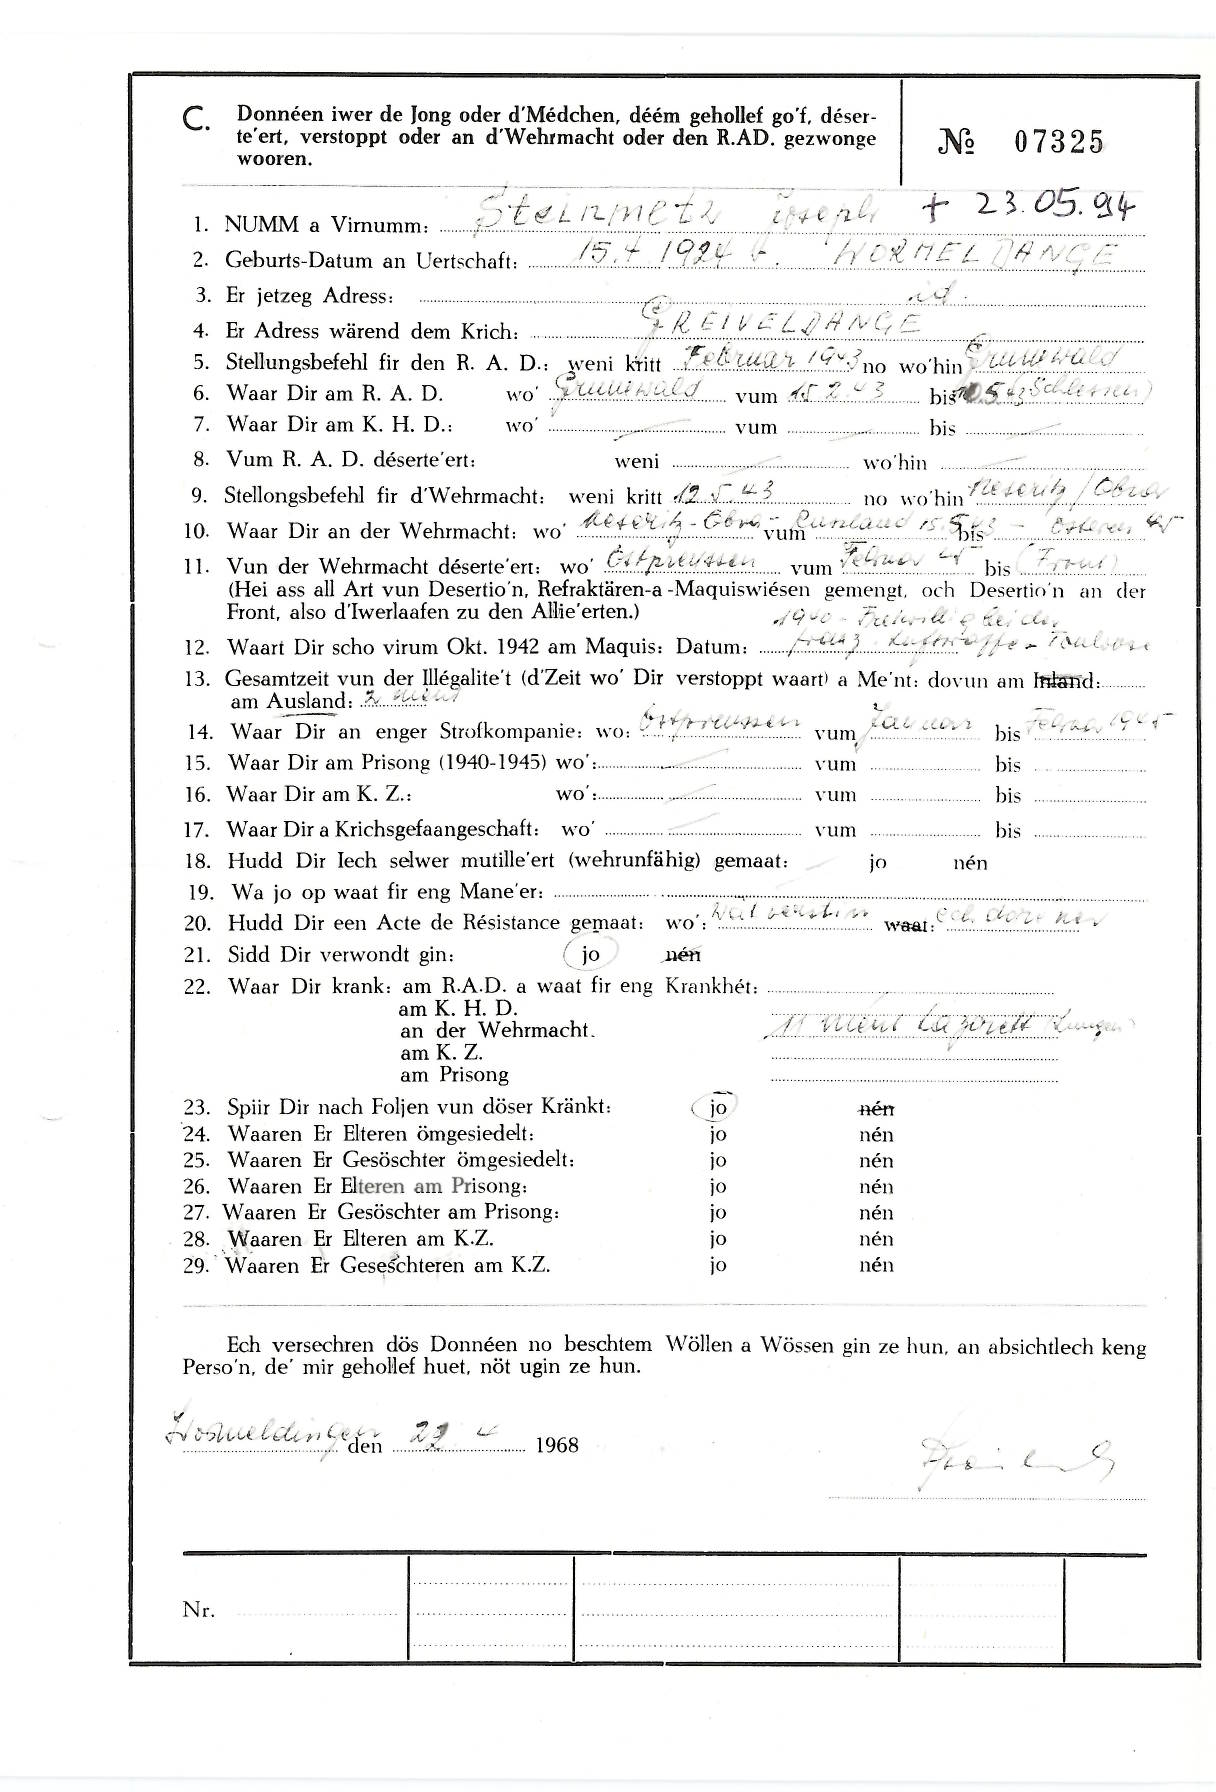 C. Donnéen iwer de Jong oder d'Médchen, déém gehollef go'f, déser-
te'ert, verstoppt oder an d'Wehrmacht oder den R.AD. gezwonge
wooren.
№ 07325
1. NUMM a Virnumm: Steinmetz Joseph + 23.05.94
2. Geburts-Datum an Uertschaft: 15.4.1924 WORMELDANGE
3. Er jetzeg Adress: id.
4. Er Adress wärend dem Krich: GREIVELDANGE
5. Stellungsbefehl fir den R. A. D.: weni kritt Februar 1943 no wo'hin Grunewald
6. Waar Dir am R. A. D. wo' Grunewald vum 15.2.43 bis 10.5.43 (Schlesien)
7. Waar Dir am K. H. D.: wo' — vum — bis —
8. Vum R. A. D. déserte'ert: weni — wo'hin —
9. Stellongsbefehl fir d'Wehrmacht: weni kritt 12.5.43 no wo'hin Meseritz/Obra
10. Waar Dir an der Wehrmacht: wo' Meseritz-Obra - Russland vum 15.5.43 bis - Osteren 45
11. Vun der Wehrmacht déserte'ert: wo' Ostpreussen vum Februar 45 bis (Front)
(Hei ass all Art vun Desertio'n, Refraktären-a -Maquiswiésen gemengt, och Desertio'n an der
Front, also d'Iwerlaafen zu den Allie'erten.)
1940 - Freiwillig bei der
12. Waart Dir scho virum Okt. 1942 am Maquis: Datum: franz. Luftwaffe - Toulouse
13. Gesamtzeit vun der Illégalite't (d'Zeit wo' Dir verstoppt waart) a Me'nt: dovun am Inland:
am Ausland: 2 ment
14. Waar Dir an enger Strofkompanie: wo: Ostpreussen vum Januar bis Februar 1945
15. Waar Dir am Prisong (1940-1945) wo': — vum bis
16. Waar Dir am K. Z.: wo': — vum bis
17. Waar Dir a Krichsgefaangeschaft: wo' — vum bis
18. Hudd Dir Iech selwer mutille'ert (wehrunfähig) gemaat: — jo nén
19. Wa jo op waat fir eng Mane'er:
20. Hudd Dir een Acte de Résistance gemaat: wo': Wat verstin waat: ech dorënner
21. Sidd Dir verwondt gin: jo nén
22. Waar Dir krank: am R.A.D. a waat fir eng Krankhét:
am K. H. D.
an der Wehrmacht. 11 ment Lazarett (Lungen)
am K. Z.
am Prisong
23. Spiir Dir nach Foljen vun döser Kränkt: jo nén
24. Waaren Er Elteren ömgesiedelt: jo nén
25. Waaren Er Gesöschter ömgesiedelt: jo nén
26. Waaren Er Elteren am Prisong: jo nén
27. Waaren Er Gesöschter am Prisong: jo nén
28. Waaren Er Elteren am K.Z. jo nén
29. Waaren Er Geseschteren am K.Z. jo nén
Ech versechren dös Donnéen no beschtem Wöllen a Wössen gin ze hun, an absichtlech keng
Perso'n, de' mir gehollef huet, nöt ugin ze hun.
Wormeldingen den 22 4 1968
Nr.